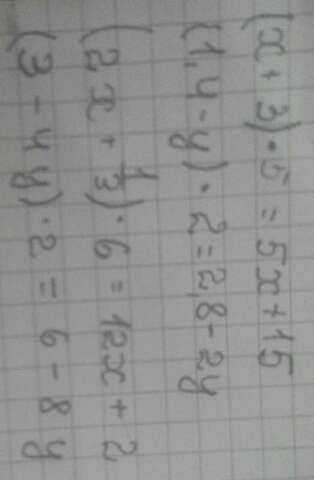 (x + 3) · 5 = 5x + 15
(1,4 - y) · 2 = 2,8 - 2y
(2x + 1/3) · 6 = 12x + 2
(3 - 4y) · 2 = 6 - 8y